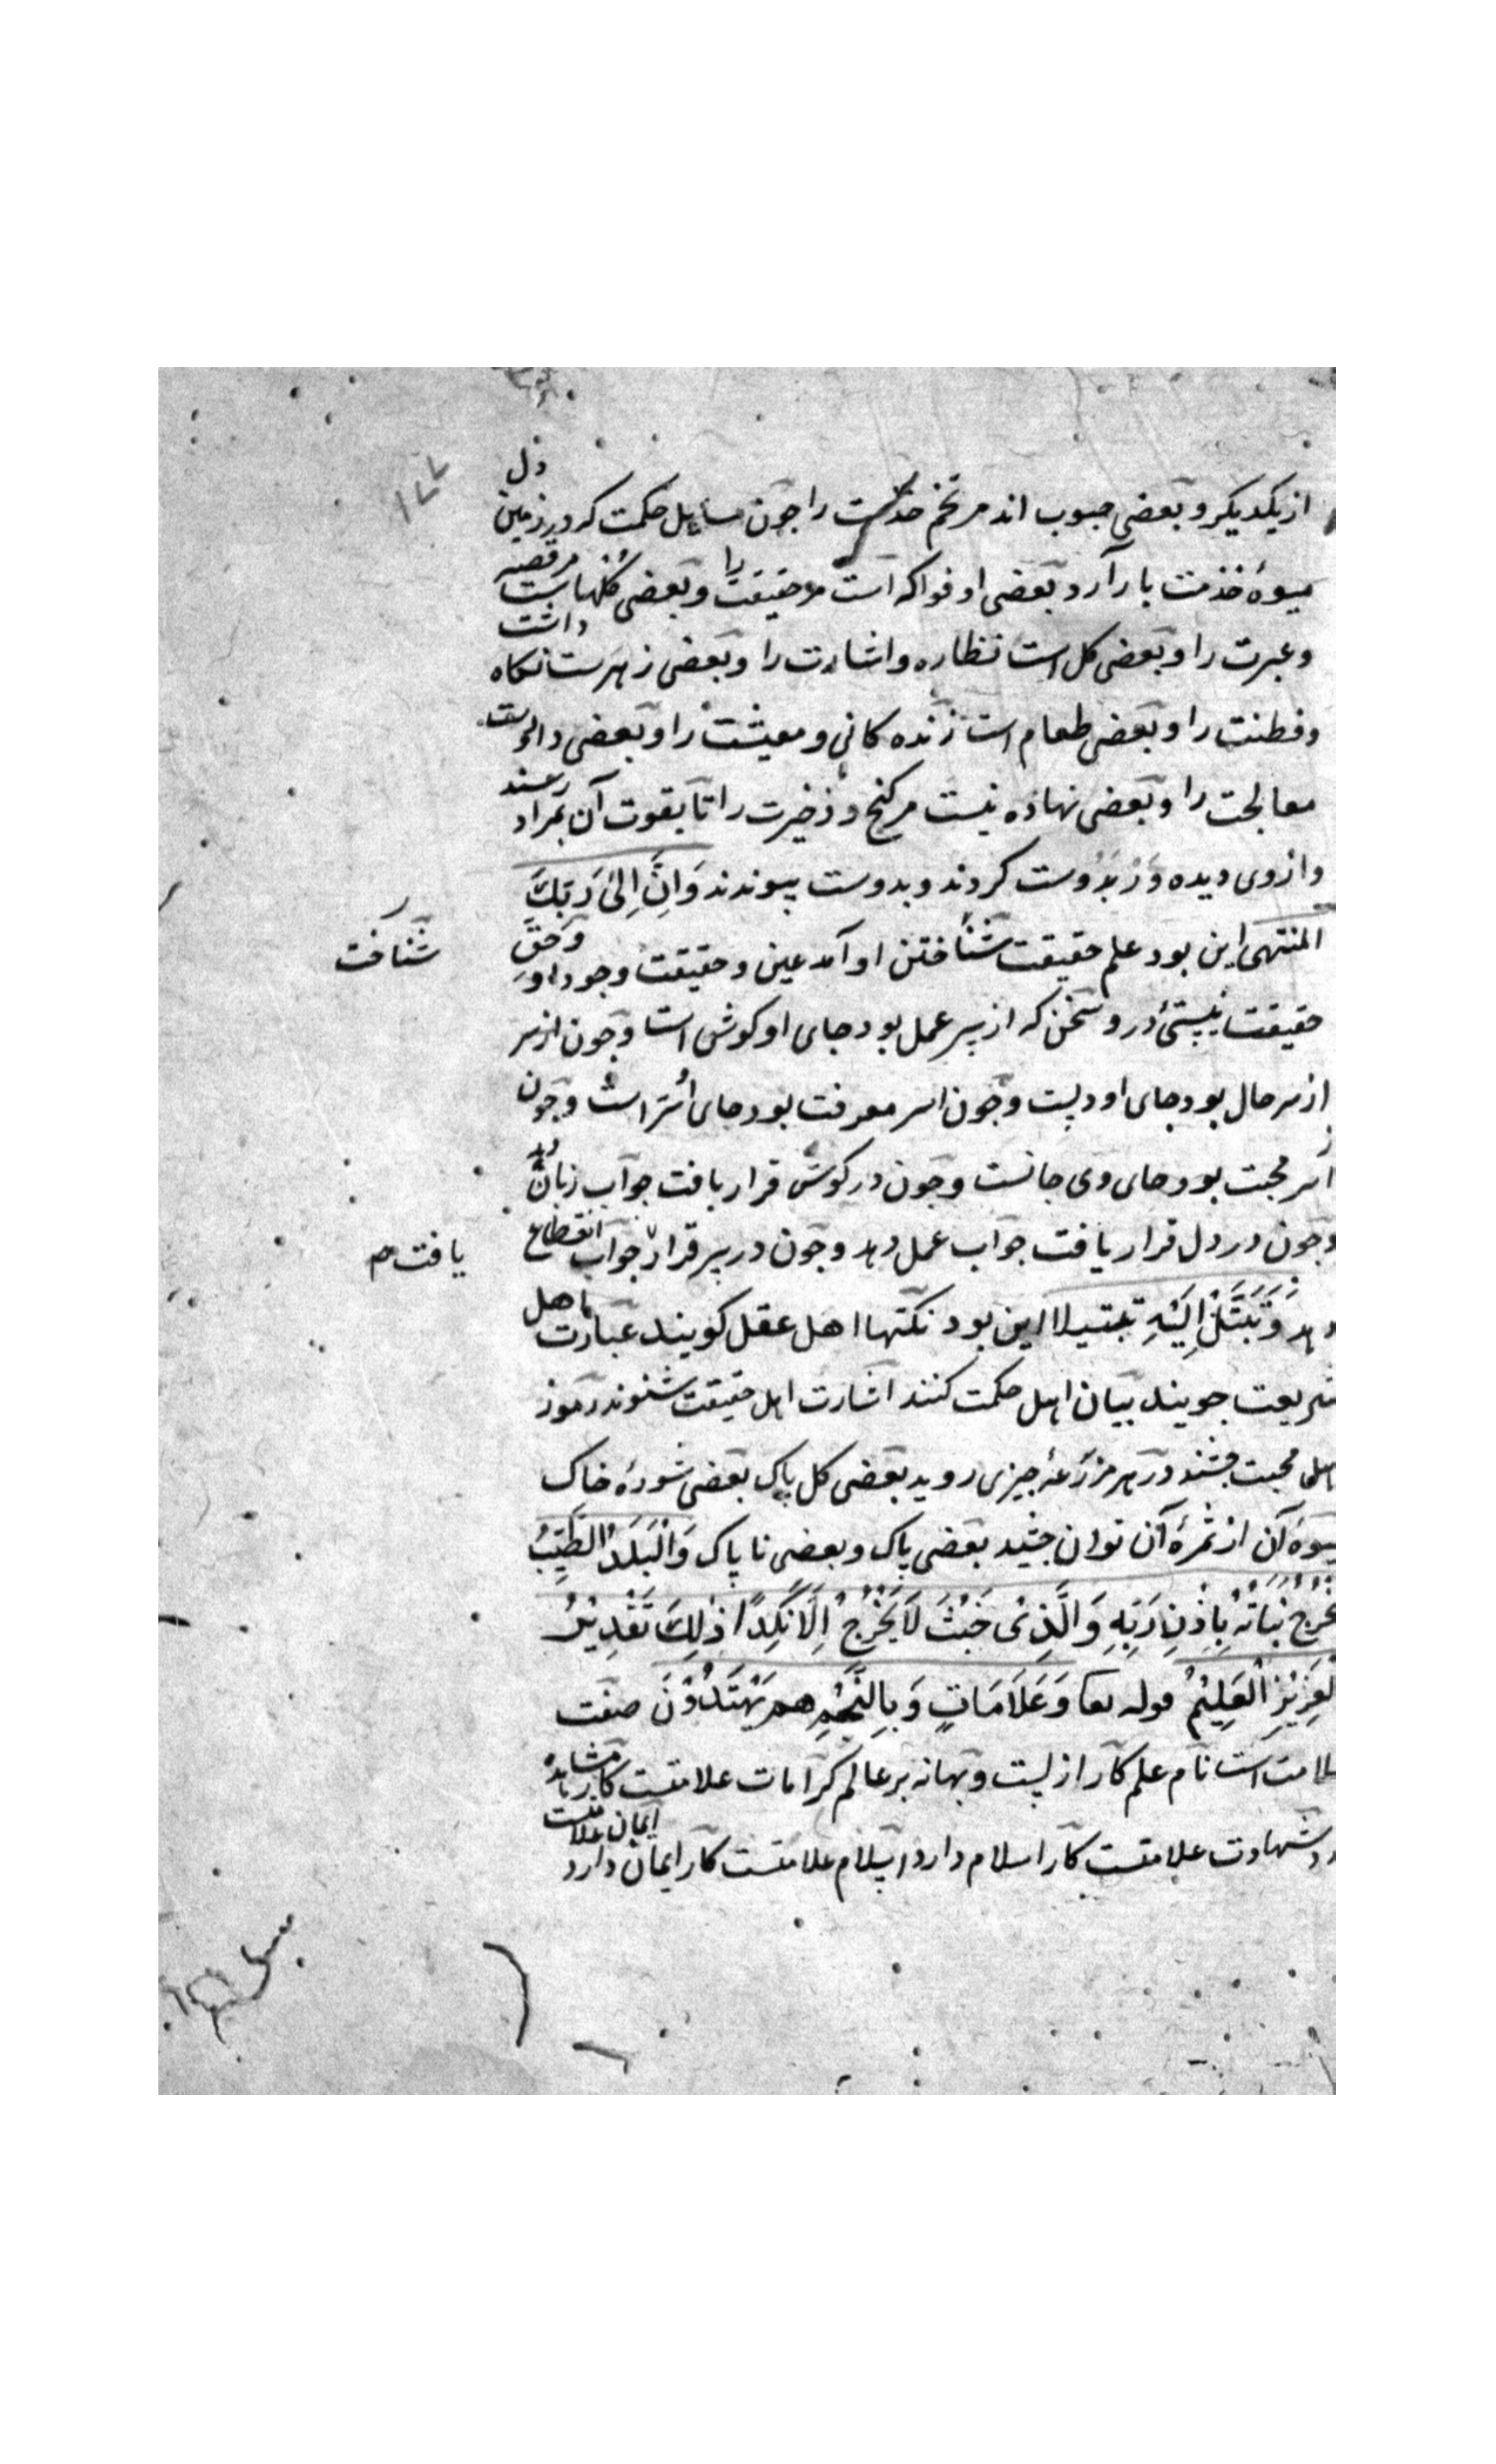 از یکدیکر و بعضی حبوب اند مر تخم خدمت را جون مسایل حکمت که در زمین دل
میوهٔ خدمت بار آرد و بعضی او فواکه است مر حقیقت را و بعضی کلهاست مر قصه
و عبرت را و بعضی کل است نظاره و اشارت را و بعضی زهرست نکاه داشت
و فطنت را و بعضی طعام است زنده کانی و معیشت را و بعضی داروست
معالجت را و بعضی نهاده نیست مر کنج و ذخیرت را تا بقوت آن بمراد رسند
و ازوی دیده ور بدوست کردند و بدوست پیوندند وَاَنَّ اِلیٰ رَبِّكَ
المنتهی این بود علم حقیقت شناختن او آمد عین و حقیقت وجود او و حق
شناخت
حقیقت نیستی در و سخن که از سر عمل بود جای او کوش است و جون از سر
از سر حال بود جای او دلست و جون از سر معرفت بود جای اسر است و جون
از سر محبت بود جای وی جانست و جون در کوش قرار یافت جواب زبان دهد
و جون در دل قرار یافت جواب عمل دهد و جون در سر قرار جواب انقطاع
یافت صح
دهد وَتَبَتَّلْ اِلَیْهِ تبتیلا این بود نکتها اهل عقل کویند عبارت اهل
شریعت جویند بیان اهل حکمت کنند اشارت اهل حقیقت شنوند رموز
اهل محبت جشند در هر مزرعهٔ جیزی روید بعضی کل پاک بعضی شورهٔ خاک
میوهٔ آن از ثمرهٔ آن توان جشید بعضی پاک و بعضی ناپاک وَالْبَلَدُ الطَّیِّبُ
یَخْرُجُ نَبَاتُهُ بِاِذْنِ رَبِّهِ وَالَّذِی خَبُثَ لَا یَخْرُجُ اِلَّا نَکِدًا ذٰلِكَ تَقْدِیْرُ
الْعَزِیْزِ الْعَلِیْمُ قوله تعا وَعَلَامَاتٍ وَبِالنَّجْمِ هم یَهْتَدُوْنَ صفت
علامت است نام علم کار از لیست و بهانه بر عالم کرامات علامتست کار مشاهده
در شهادت علامتست کار اسلام دارد اسلام علامتست کار ایمان دارد ایمان علامتست